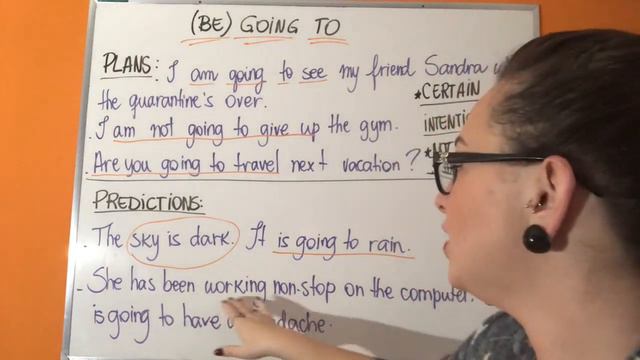 (BE) GOING TO
PLANS: I am going to see my friend Sandra
the quarantine's over.
. I am not going to give up the gym.
. Are you going to travel next vacation?
*CERTAIN
PREDICTIONS:
. The sky is dark. It is going to rain.
- She has been working non-stop on the computer.
is going to have